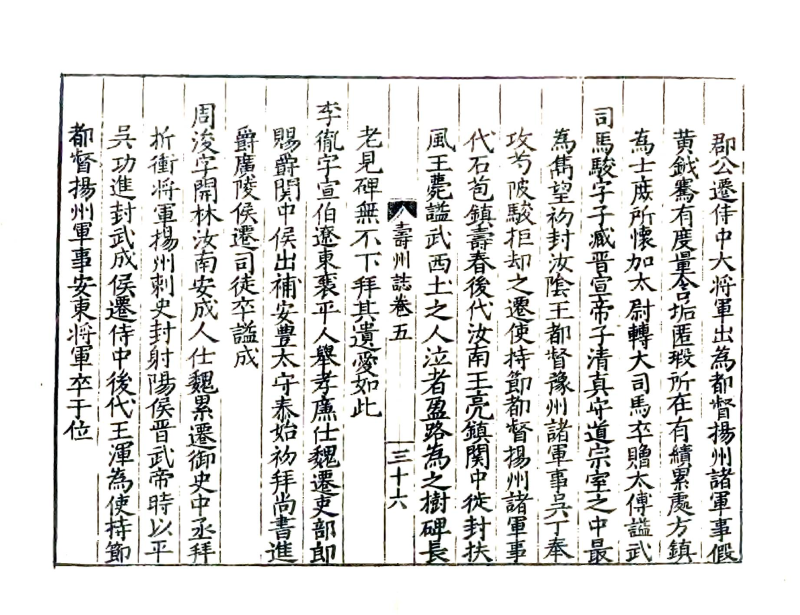 郡公遷侍中大將軍出為都督揚州諸軍事假
黃鉞騫有度量含垢匿瑕所在有績累處方鎮
為士庶所懷加太尉轉大司馬卒贈太傅謚武
司馬駿字子臧晉宣帝子清真守道宗室之中最
為雋望初封汝陰王都督豫州諸軍事吳丁奉
攻芍陂駿拒却之遷使持節都督揚州諸軍事
代石苞鎮壽春後代汝南王亮鎮関中徙封扶
風王薨謚武西土之人泣者盈路為之樹碑長
壽州誌卷五
三十六
老見碑無不下拜其遺愛如此
李胤字宣伯遼東襄平人舉孝廉仕魏遷吏部郎
賜爵関中侯出補安豊太守泰始初拜尚書進
爵廣陵侯遷司徒卒謚成
周浚字開林汝南安成人仕魏累遷御史中丞拜
折衝將軍揚州刺史封射陽侯晉武帝時以平
吳功進封武成侯遷侍中後代王渾為使持節
都督揚州軍事安東將軍卒于位